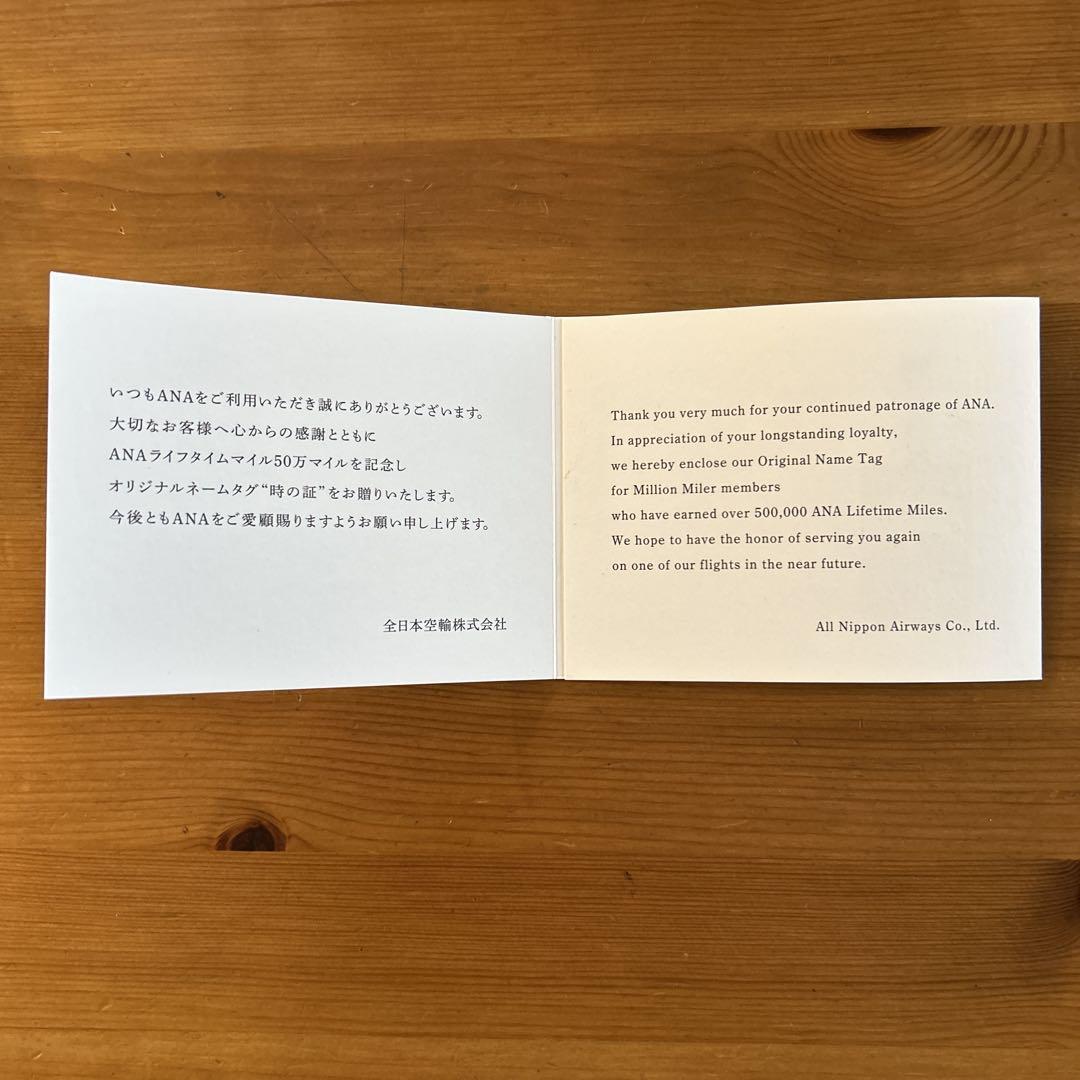 いつもANAをご利用いただき誠にありがとうございます。
大切なお客様へ心からの感謝とともに
ANAライフタイムマイル50万マイルを記念し
オリジナルネームタグ“時の証”をお贈りいたします。
今後ともANAをご愛顧賜りますようお願い申し上げます。
全日本空輸株式会社
Thank you very much for your continued patronage of ANA.
In appreciation of your longstanding loyalty,
we hereby enclose our Original Name Tag
for Million Miler members
who have earned over 500,000 ANA Lifetime Miles.
We hope to have the honor of serving you again
on one of our flights in the near future.
All Nippon Airways Co., Ltd.